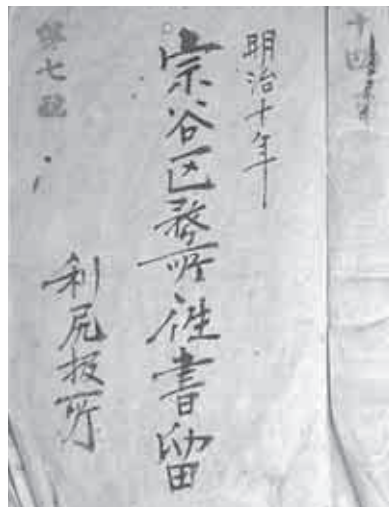 明治十年
宗谷区務所往書留
利尻扱所
第七號